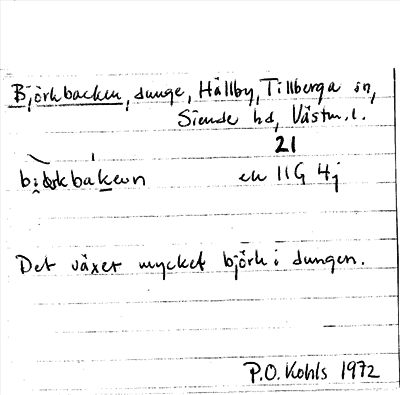 Björkbacken, dunge, Hällby, Tillberga sn,
Siende hd, Västm. l.
21
ek 11G 4j
Det växer mycket björk i dungen.
P.O. Kohls 1972